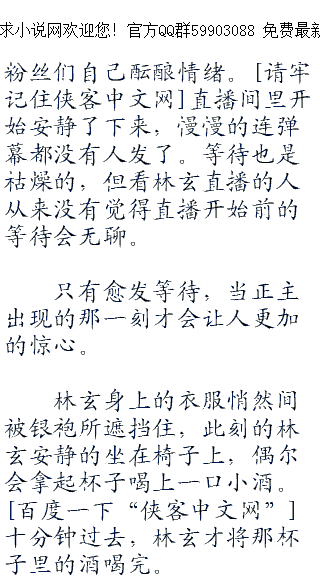 求小说网欢迎您！官方QQ群59903088 免费最新
粉丝们自己酝酿情绪。[请牢
记住侠客中文网]直播间里开
始安静了下来，漫漫的连弹
幕都没有人发了。等待也是
祜燥的，但看林玄直播的人
从来没有觉得直播开始前的
等待会无聊。
只有愈发等待，当正主
出现的那一刻才会让人更加
的惊心。
林玄身上的衣服悄然间
被银袍所遮挡住，此刻的林
玄安静的坐在椅子上，偶尔
会拿起杯子喝上一口小酒。
[百度一下“侠客中文网”]
十分钟过去，林玄才将那杯
子里的酒喝完。